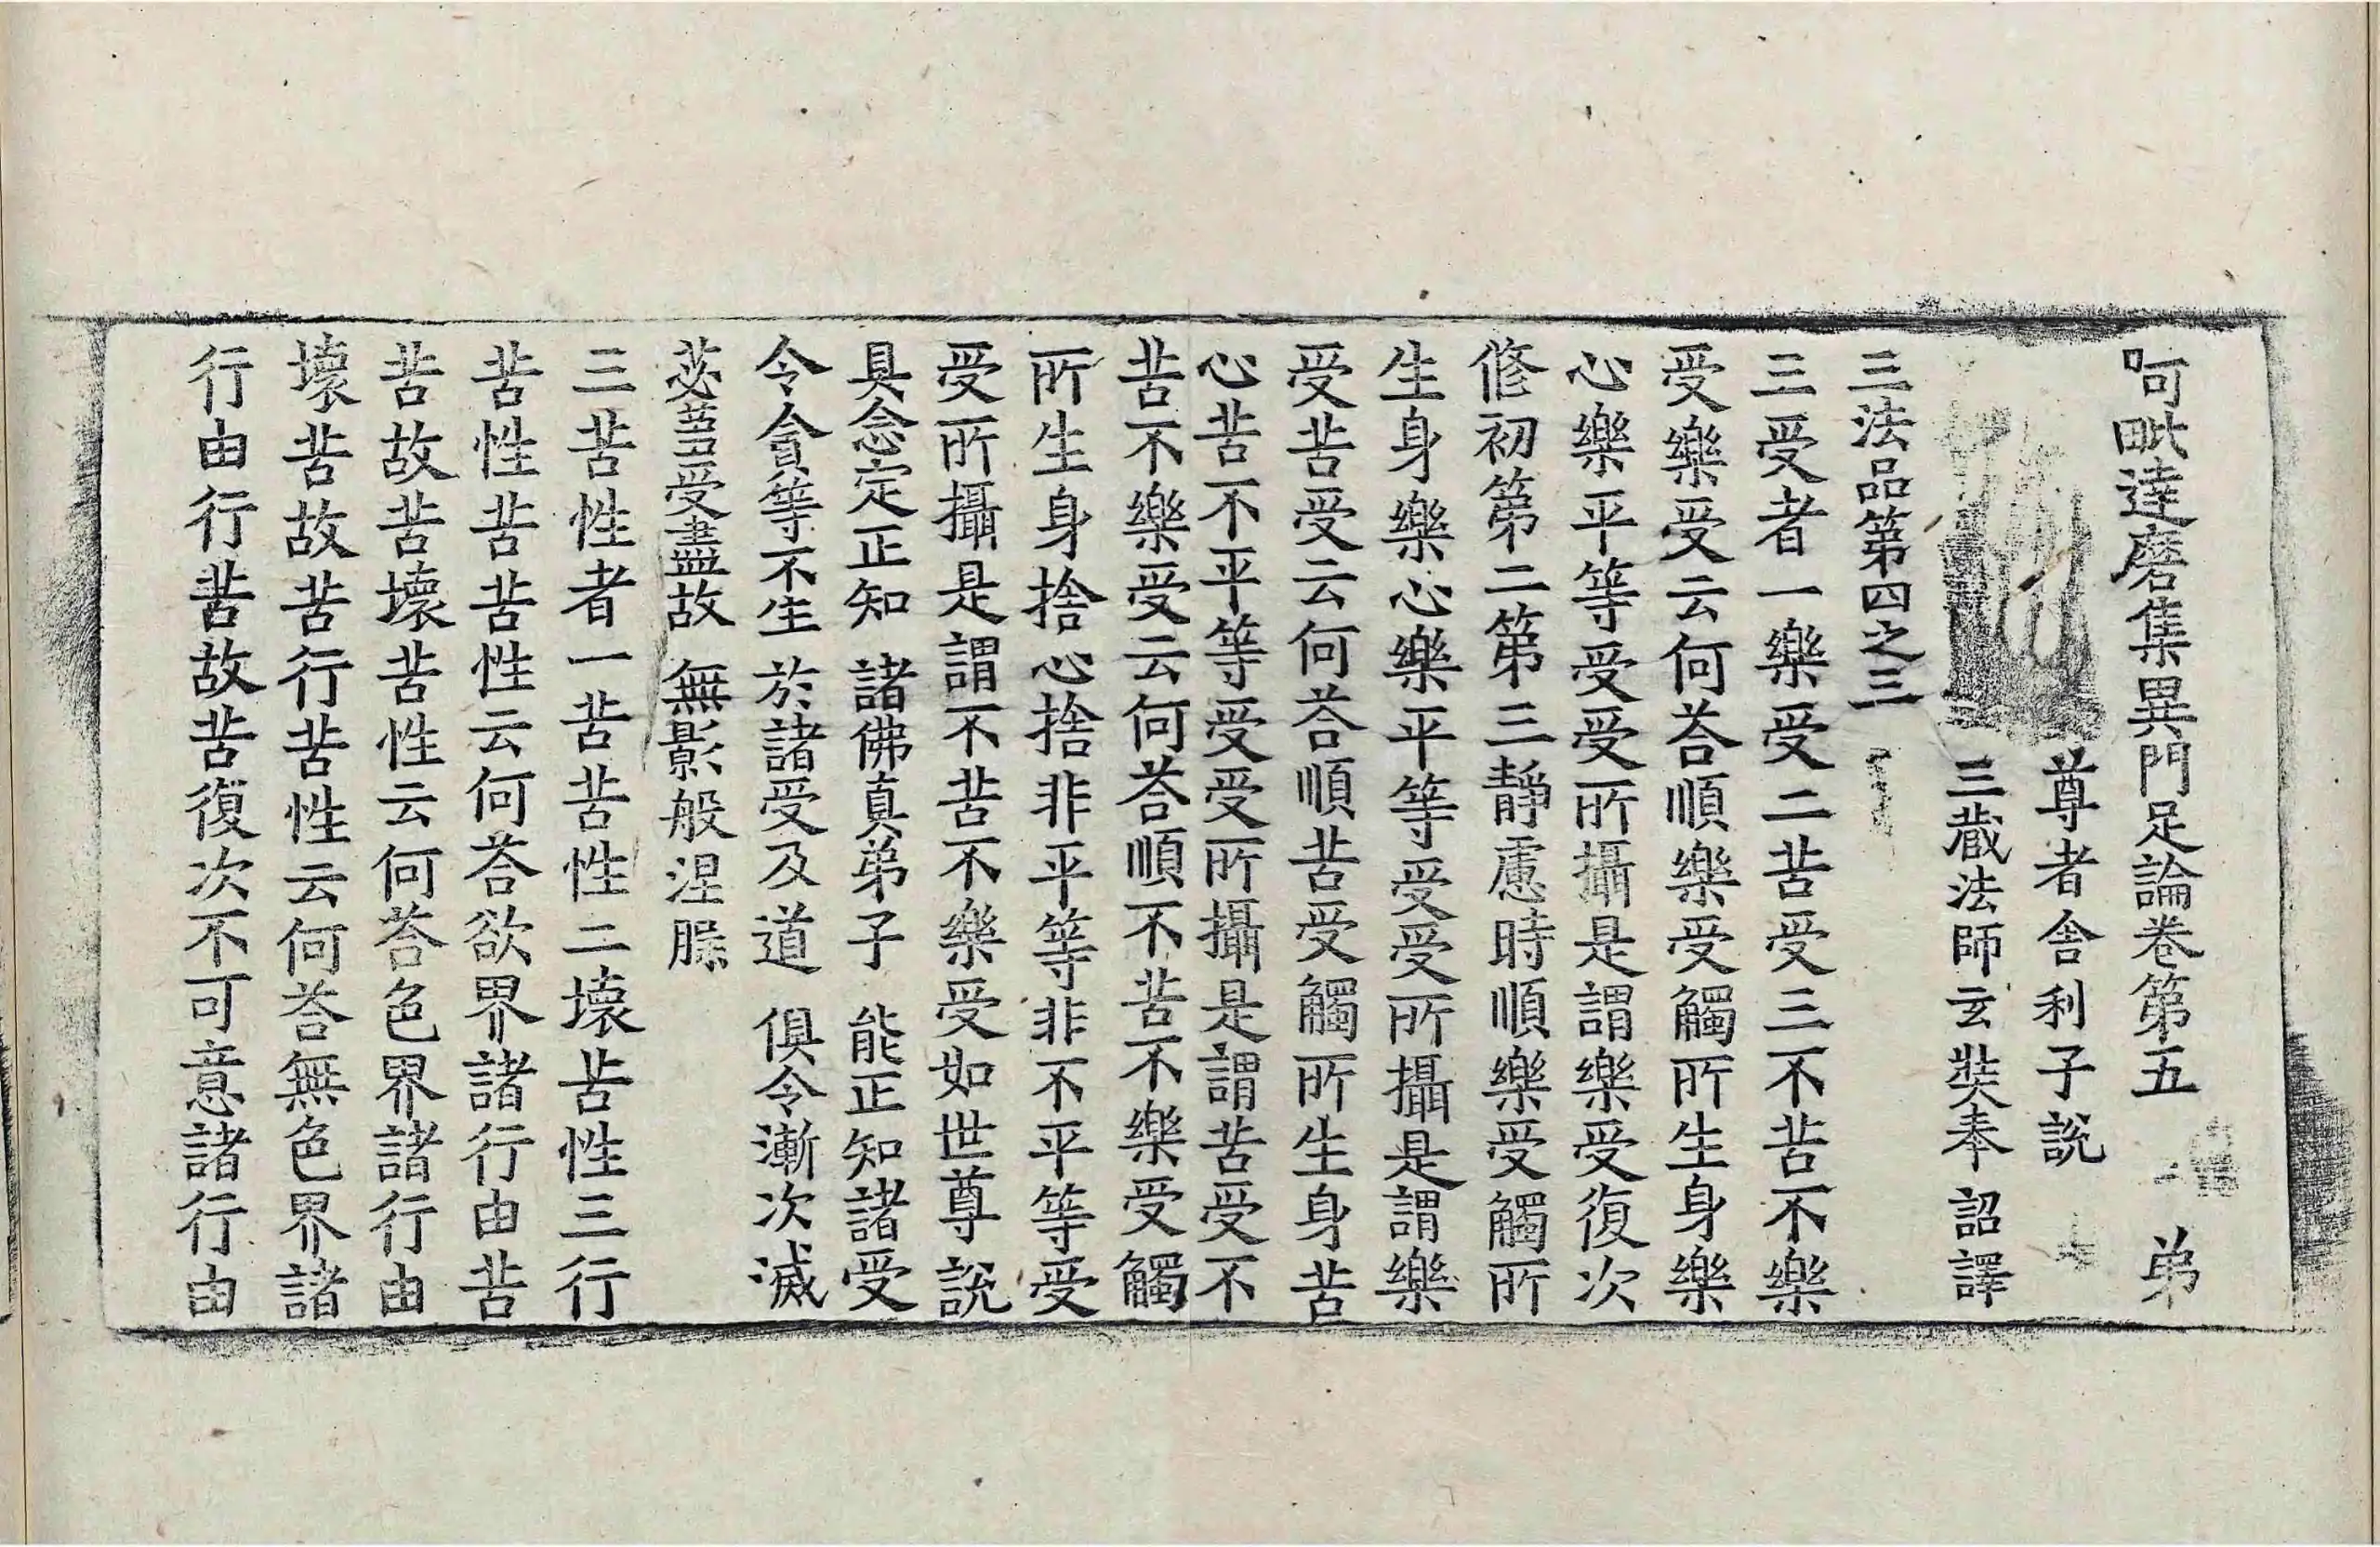 阿毗達磨集異門足論卷第五 弟
尊者舍利子說
三藏法師玄奘奉 詔譯
三法品第四之三
三受者一樂受二苦受三不苦不樂
受樂受云何荅順樂受觸所生身樂
心樂平等受受所攝是謂樂受復次
修初第二第三靜慮時順樂受觸所
生身樂心樂平等受受所攝是謂樂
受苦受云何荅順苦受觸所生身苦
心苦不平等受受所攝是謂苦受不
苦不樂受云何荅順不苦不樂受觸
所生身捨心捨非平等非不平等受
受所攝是謂不苦不樂受如世尊說
具念定正知 諸佛真弟子 能正知諸受
令會等不生 於諸受及道 俱令漸次滅
苾蒭受盡故 無影般涅槃
三苦性者一苦苦性二壞苦性三行
苦性苦苦性云何荅欲界諸行由苦
苦故苦壞苦性云何荅色界諸行由
壞苦故苦行苦性云何荅無色界諸
行由行苦故苦復次不可意諸行由